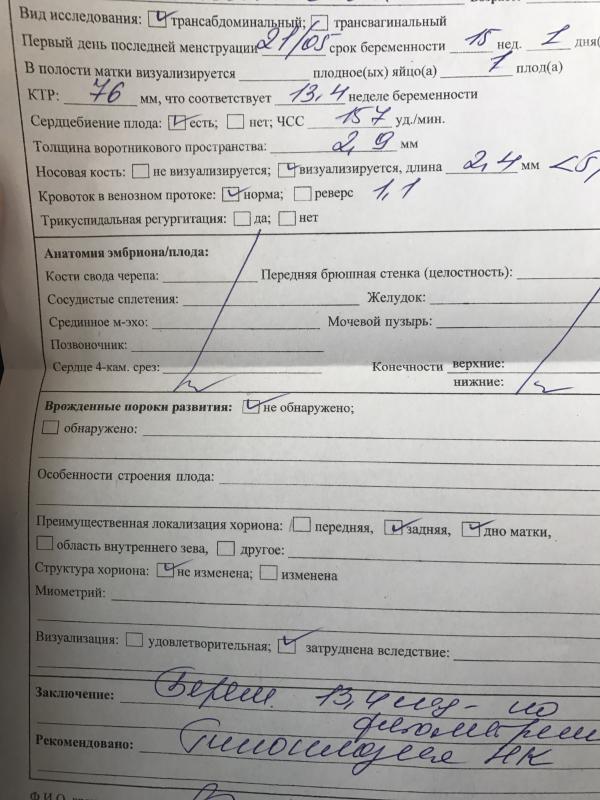 Вид исследования: трансабдоминальный; трансвагинальный
Первый день последней менструации 21/05 срок беременности 15 нед. 1 дня(
В полости матки визуализируется плодное(ых) яйцо(а) 1 плод(а)
КТР: 76 мм, что соответствует 13,4 неделе беременности
Сердцебиение плода: есть; нет; ЧСС 157 уд./мин.
Толщина воротникового пространства: 2,9 мм
Носовая кость: не визуализируется; визуализируется, длина 2,4 мм <5,
Кровоток в венозном протоке: норма; реверс 1,1
Трикуспидальная регургитация: да; нет
Анатомия эмбриона/плода:
Кости свода черепа: Передняя брюшная стенка (целостность):
Сосудистые сплетения: Желудок:
Срединное м-эхо: Мочевой пузырь:
Позвоночник:
Сердце 4-кам. срез: Конечности верхние:
нижние:
Врожденные пороки развития: не обнаружено;
обнаружено:
Особенности строения плода:
Преимущественная локализация хориона: передняя, задняя, дно матки,
область внутреннего зева, другое:
Структура хориона: не изменена; изменена
Миометрий:
Визуализация: удовлетворительная; затруднена вследствие:
Заключение: Берем. 13,4 нед - по
фетометрии
Рекомендовано: Гипоплазия НК
Ф.И.О.